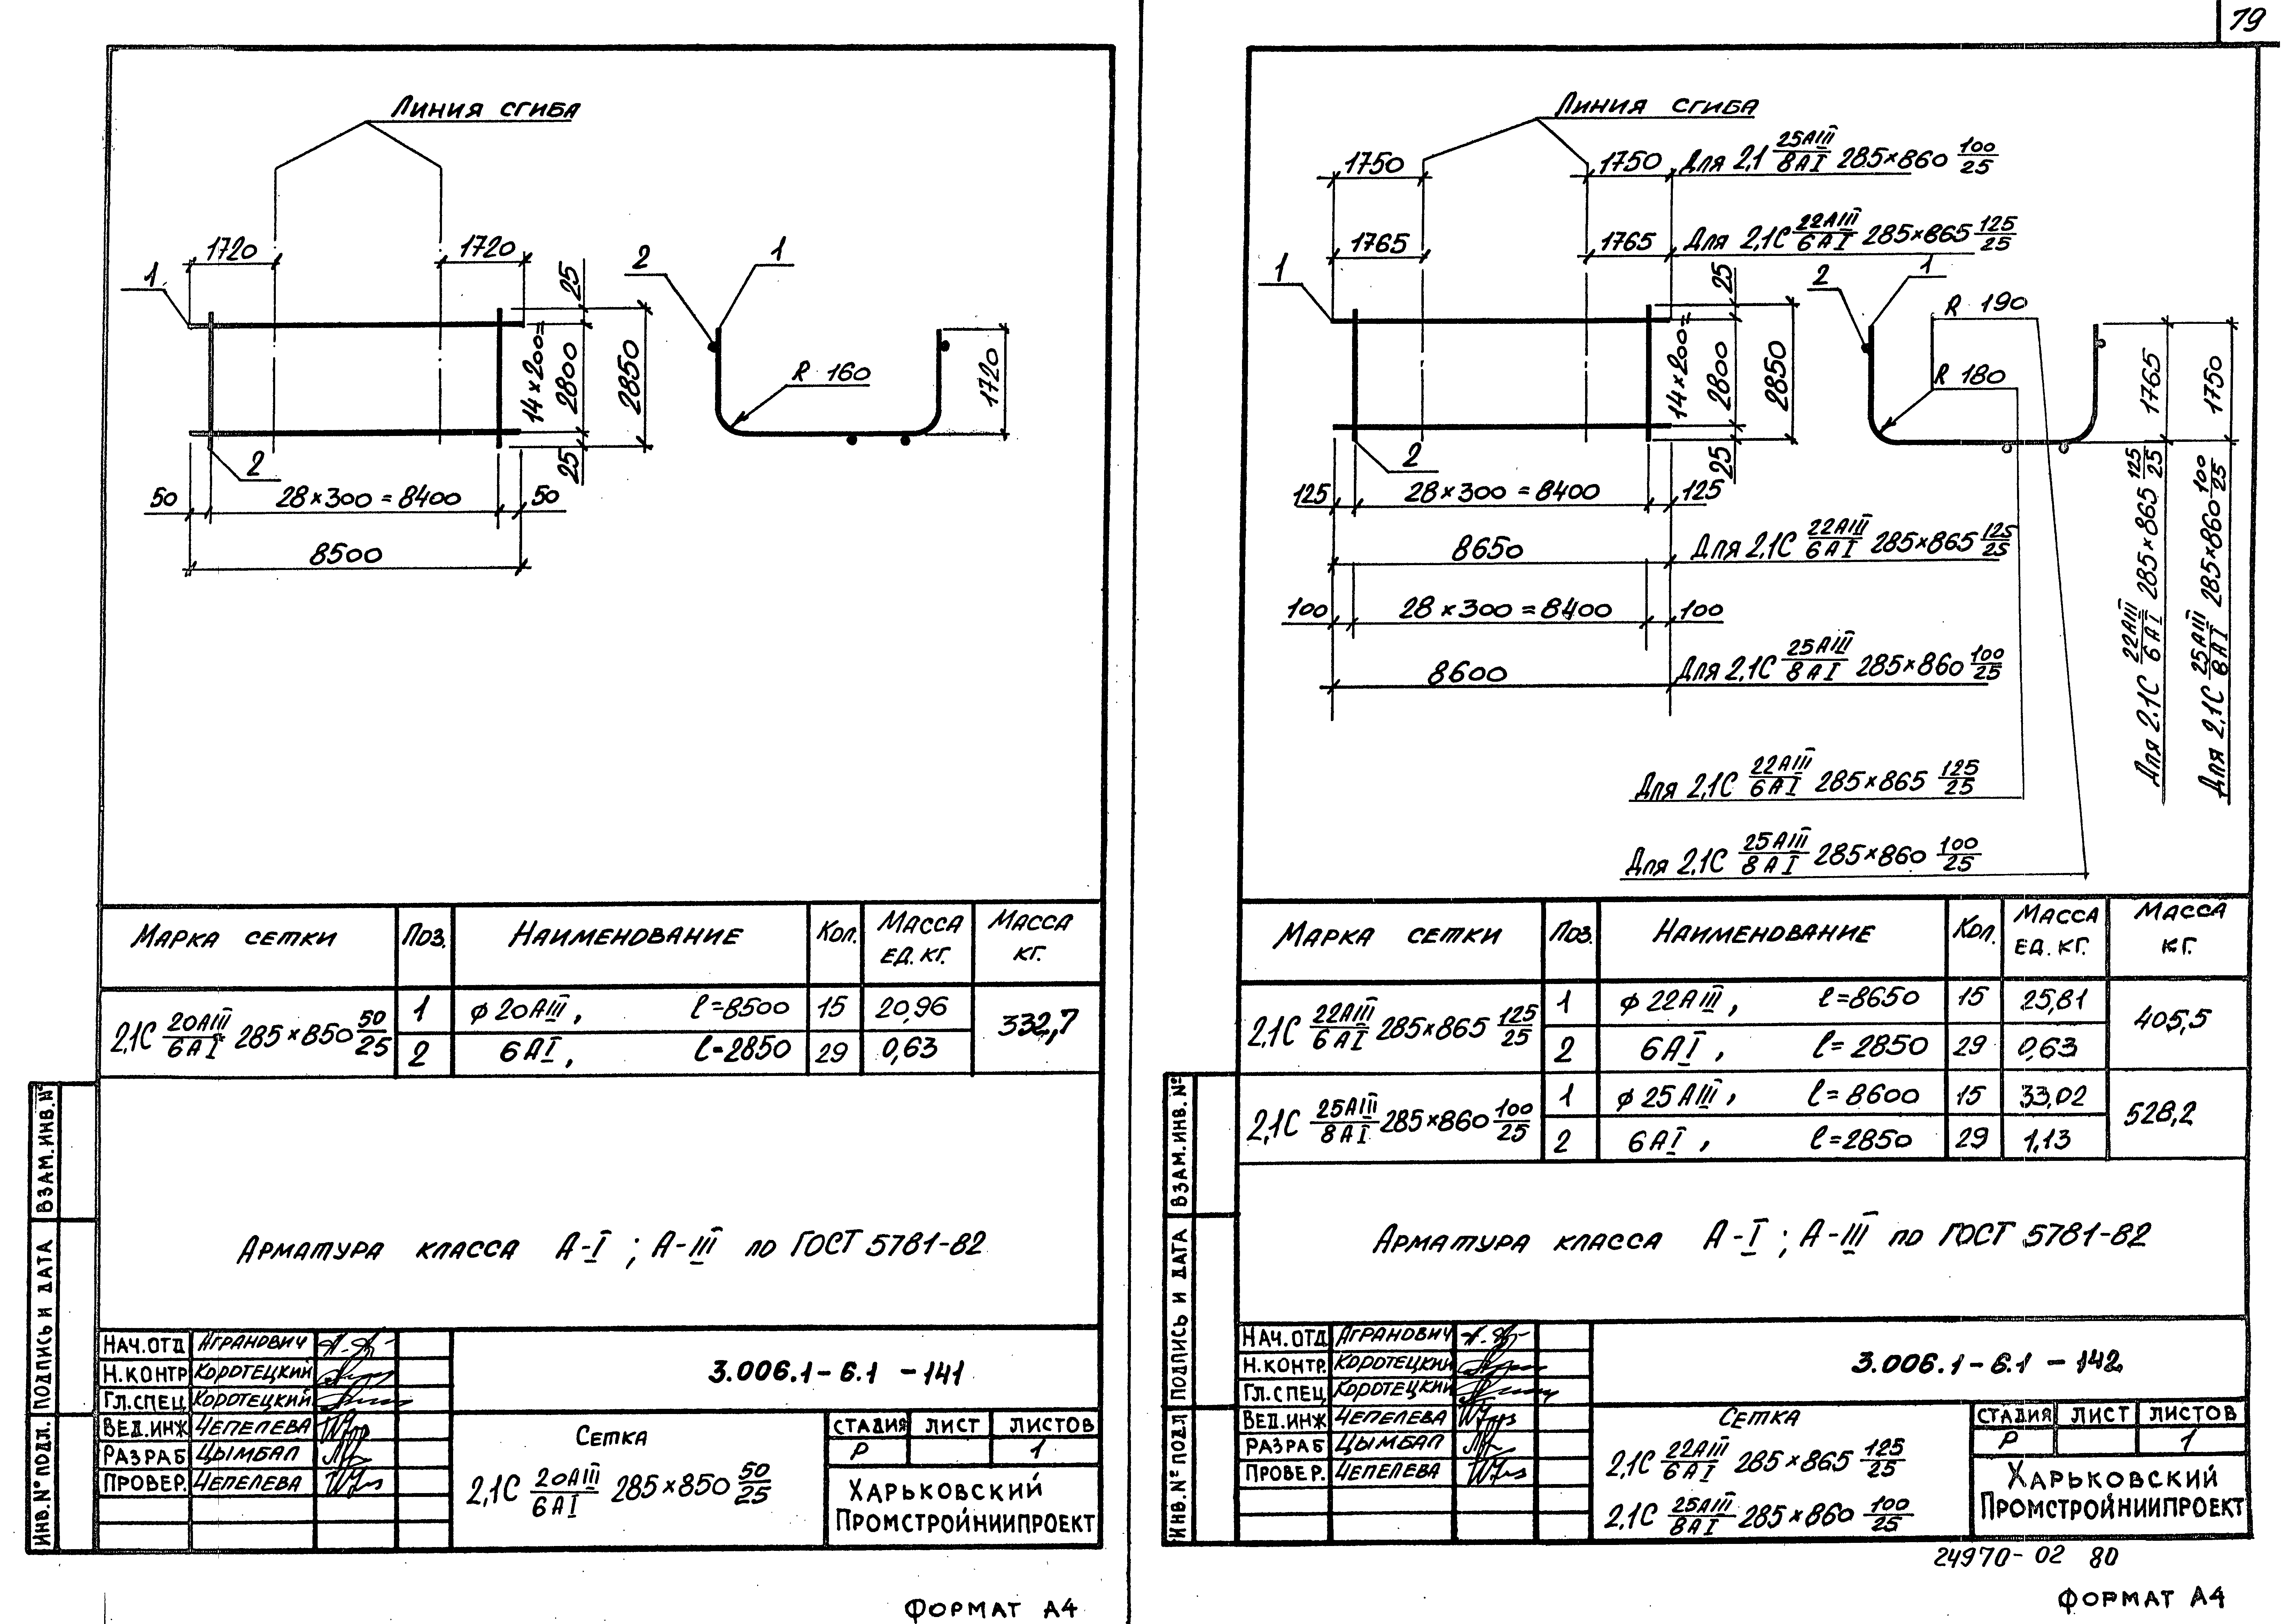 79
Линия сгиба
1720 1720
1 2 1
25
14×200=
2800
2850
25
R 160
1720
2
50 28×300=8400 50
8500
Марка сетки Поз. Наименование Кол. Масса ед. кг. Масса кг.
2,1С 20АIII/6АI 285×850 50/25 1 φ20АIII, ℓ=8500 15 20,96 332,7
2 6АI, ℓ=2850 29 0,63
Арматура класса А-I ; А-III по ГОСТ 5781-82
ВЗАМ.ИНВ.№
ПОДПИСЬ И ДАТА
ИНВ.№ ПОДЛ.
НАЧ.ОТД АГРАНОВИЧ
Н.КОНТР КОРОТЕЦКИЙ
ГЛ.СПЕЦ КОРОТЕЦКИЙ
ВЕД.ИНЖ ЧЕПЕЛЕВА
РАЗРАБ ЦЫМБАЛ
ПРОВЕР. ЧЕПЕЛЕВА
3.006.1-6.1 -141
Сетка
2,1С 20АIII/6АI 285×850 50/25
СТАДИЯ ЛИСТ ЛИСТОВ
Р 1
ХАРЬКОВСКИЙ
ПРОМСТРОЙНИИПРОЕКТ
ФОРМАТ А4
Линия сгиба
1750 1750 Для 2,1 25АIII/8АI 285×860 100/25
1765 1765 Для 2,1С 22АIII/6АI 285×865 125/25
1 2 1
25
14×200=
2800
2850
25
R 190
R 180
1765
1750
Для 2.1С 22АIII/6АI 285×865 125/25
Для 2,1С 25АIII/8АI 285×860 100/25
2
125 28×300=8400 125
8650 Для 2,1С 22АIII/6АI 285×865 125/25
100 28×300=8400 100
8600 Для 2,1С 25АIII/8АI 285×860 100/25
Для 2,1С 22АIII/6АI 285×865 125/25
Для 2,1С 25АIII/8АI 285×860 100/25
Марка сетки Поз. Наименование Кол. Масса ед. кг. Масса кг.
2,1С 22АIII/6АI 285×865 125/25 1 φ22АIII, ℓ=8650 15 25,81 405,5
2 6АI, ℓ=2850 29 0,63
2,1С 25АIII/8АI 285×860 100/25 1 φ25АIII, ℓ=8600 15 33,02 528,2
2 6АI, ℓ=2850 29 1,13
Арматура класса А-I ; А-III по ГОСТ 5781-82
ВЗАМ.ИНВ.№
ПОДПИСЬ И ДАТА
ИНВ.№ ПОДЛ
НАЧ.ОТД АГРАНОВИЧ
Н.КОНТР. КОРОТЕЦКИЙ
ГЛ.СПЕЦ КОРОТЕЦКИЙ
ВЕД.ИНЖ ЧЕПЕЛЕВА
РАЗРАБ ЦЫМБАЛ
ПРОВЕР. ЧЕПЕЛЕВА
3.006.1-6.1 -142
Сетка
2,1С 22АIII/6АI 285×865 125/25
2,1С 25АIII/8АI 285×860 100/25
СТАДИЯ ЛИСТ ЛИСТОВ
Р 1
ХАРЬКОВСКИЙ
ПРОМСТРОЙНИИПРОЕКТ
24970-02 80
ФОРМАТ А4